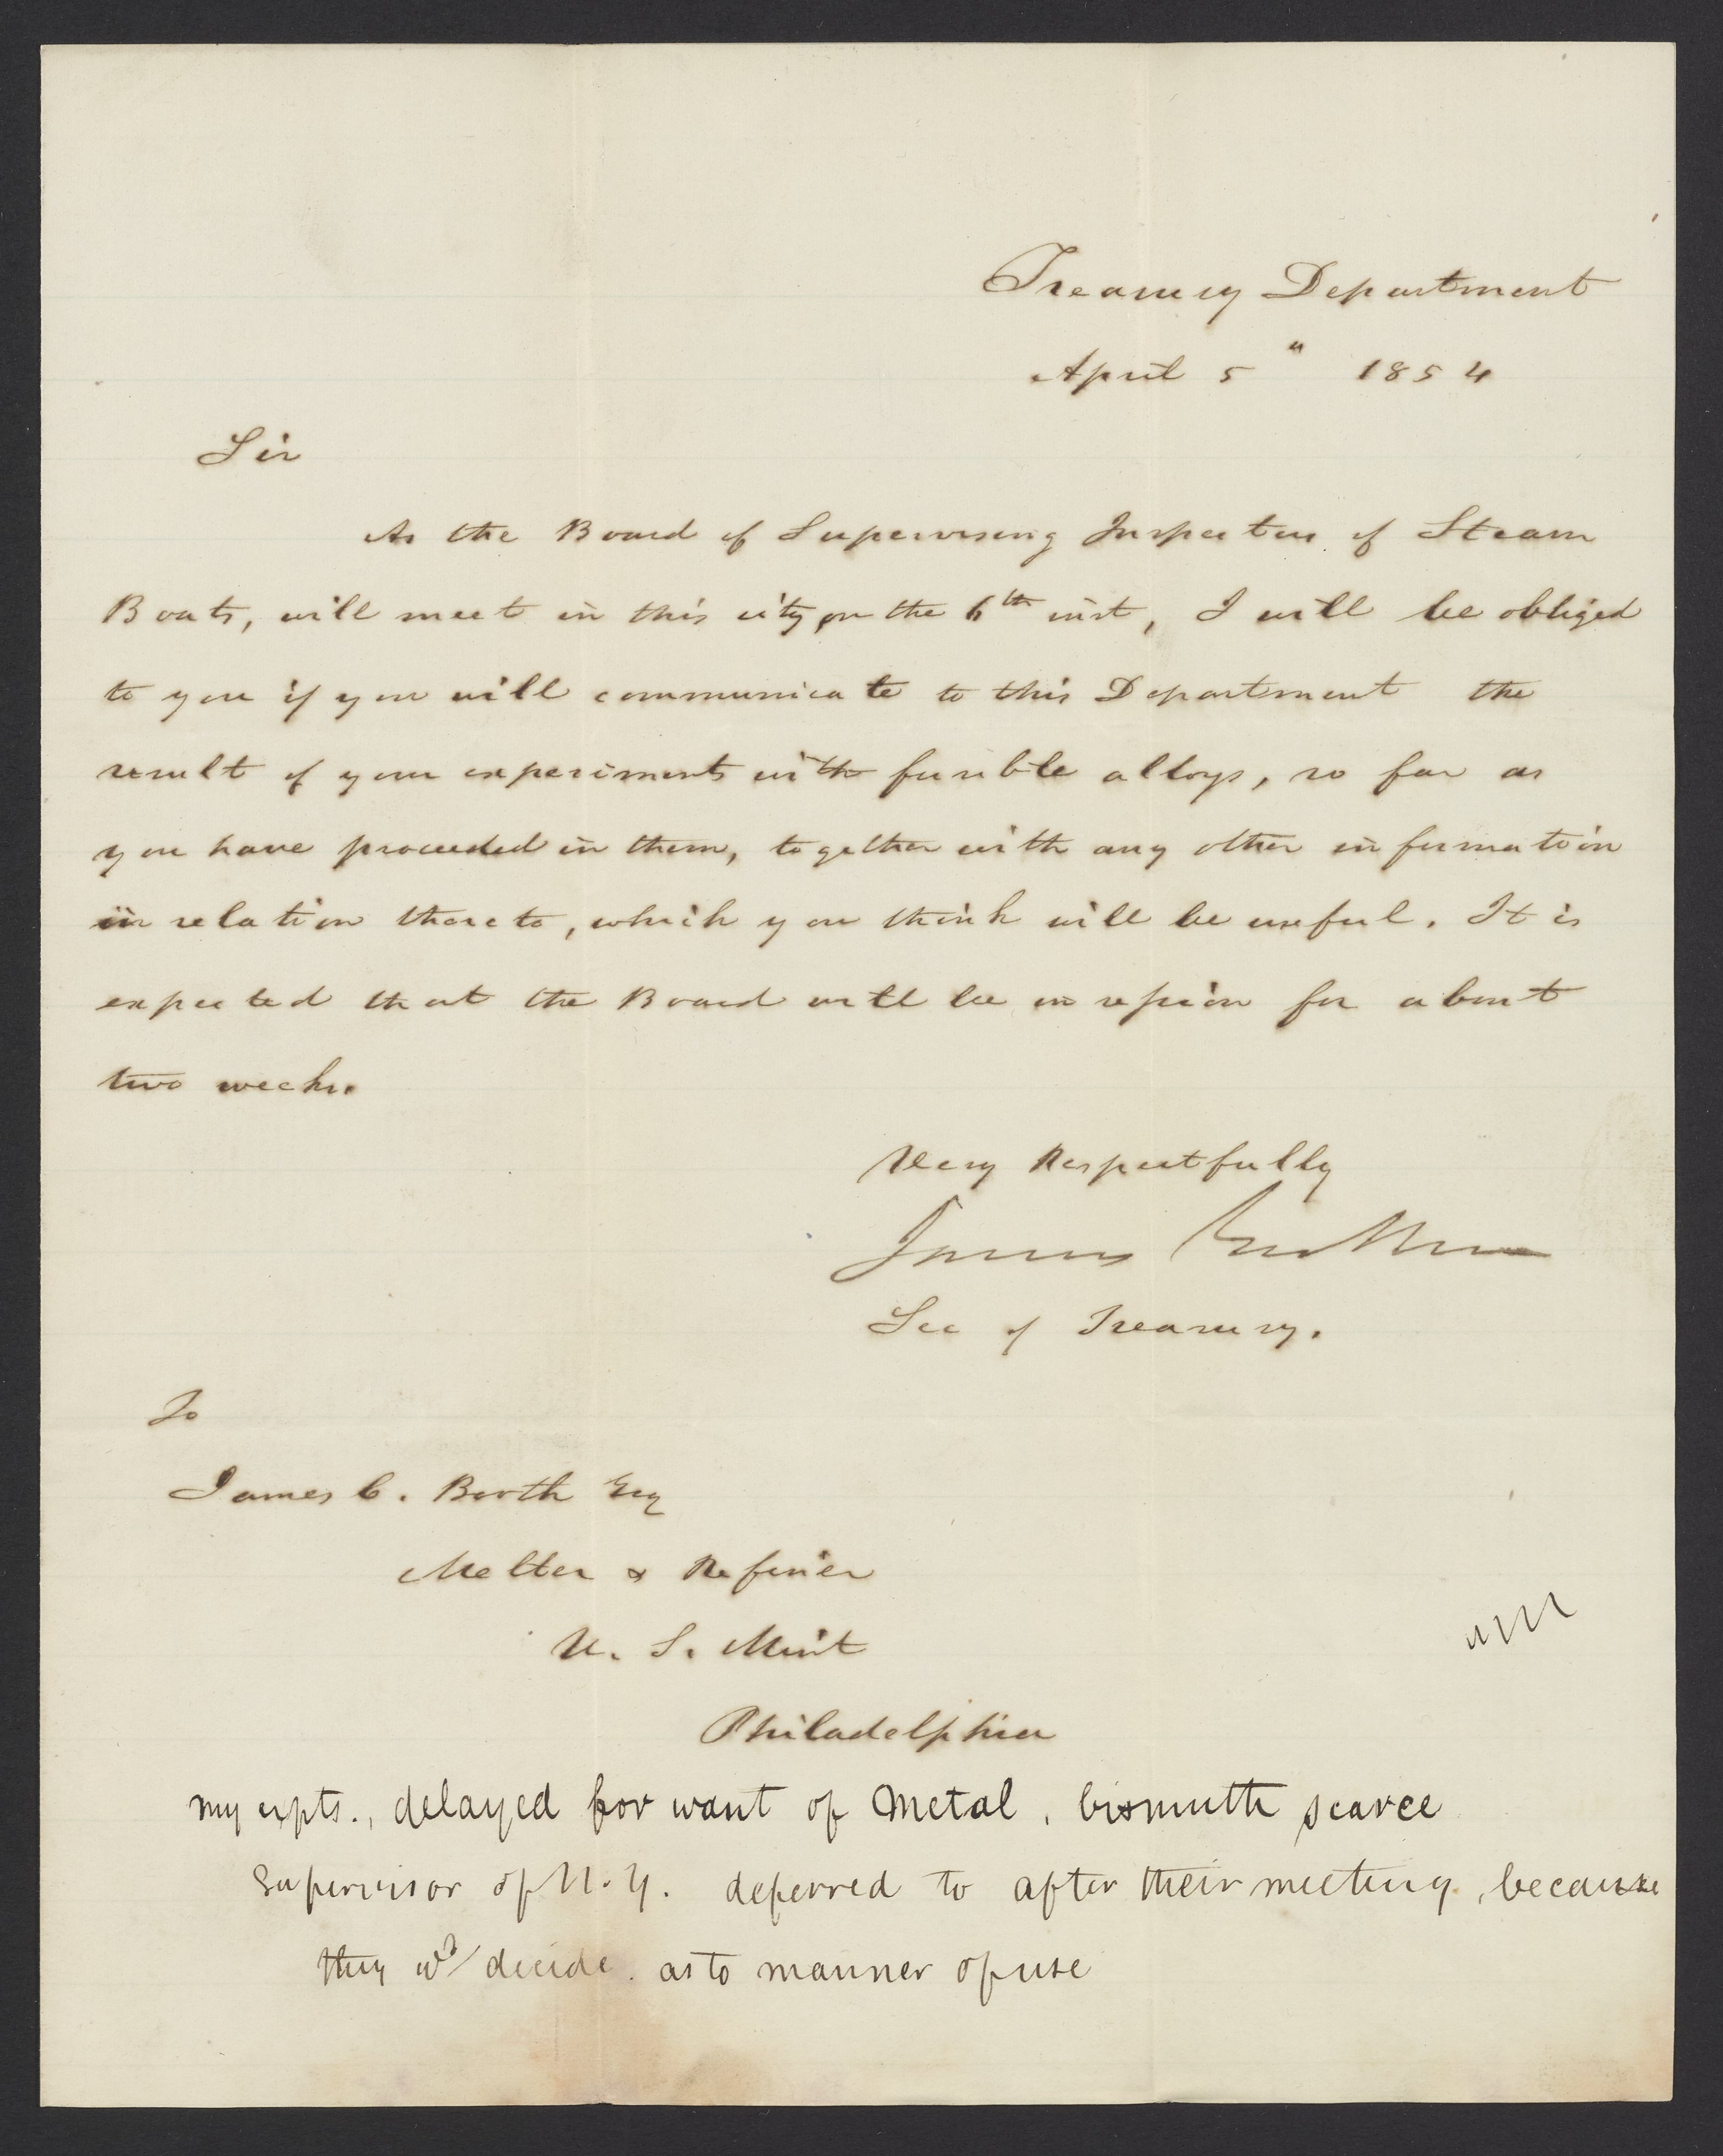 Treasury Department
April 5" 1854
Sir
As the Board of Supervising Inspectors of Steam
Boats, will meet in this city on the 6th inst, I will be obliged
to you if you will communicate to this Department the
result of your experiments with fusible alloys, so far as
you have proceeded in them, together with any other information
in relation thereto, which you think will be useful. It is
expected that the Board will be in session for about
two weeks.
Very Respectfully
James Guthrie
Sec of Treasury.
To
James C. Booth Esq
Melter & Refiner
U. S. Mint
Philadelphia
my expts., delayed for want of metal, bismuth scarce
Supervisor of N.Y. deferred to after their meeting, because
they wd decide as to manner of use